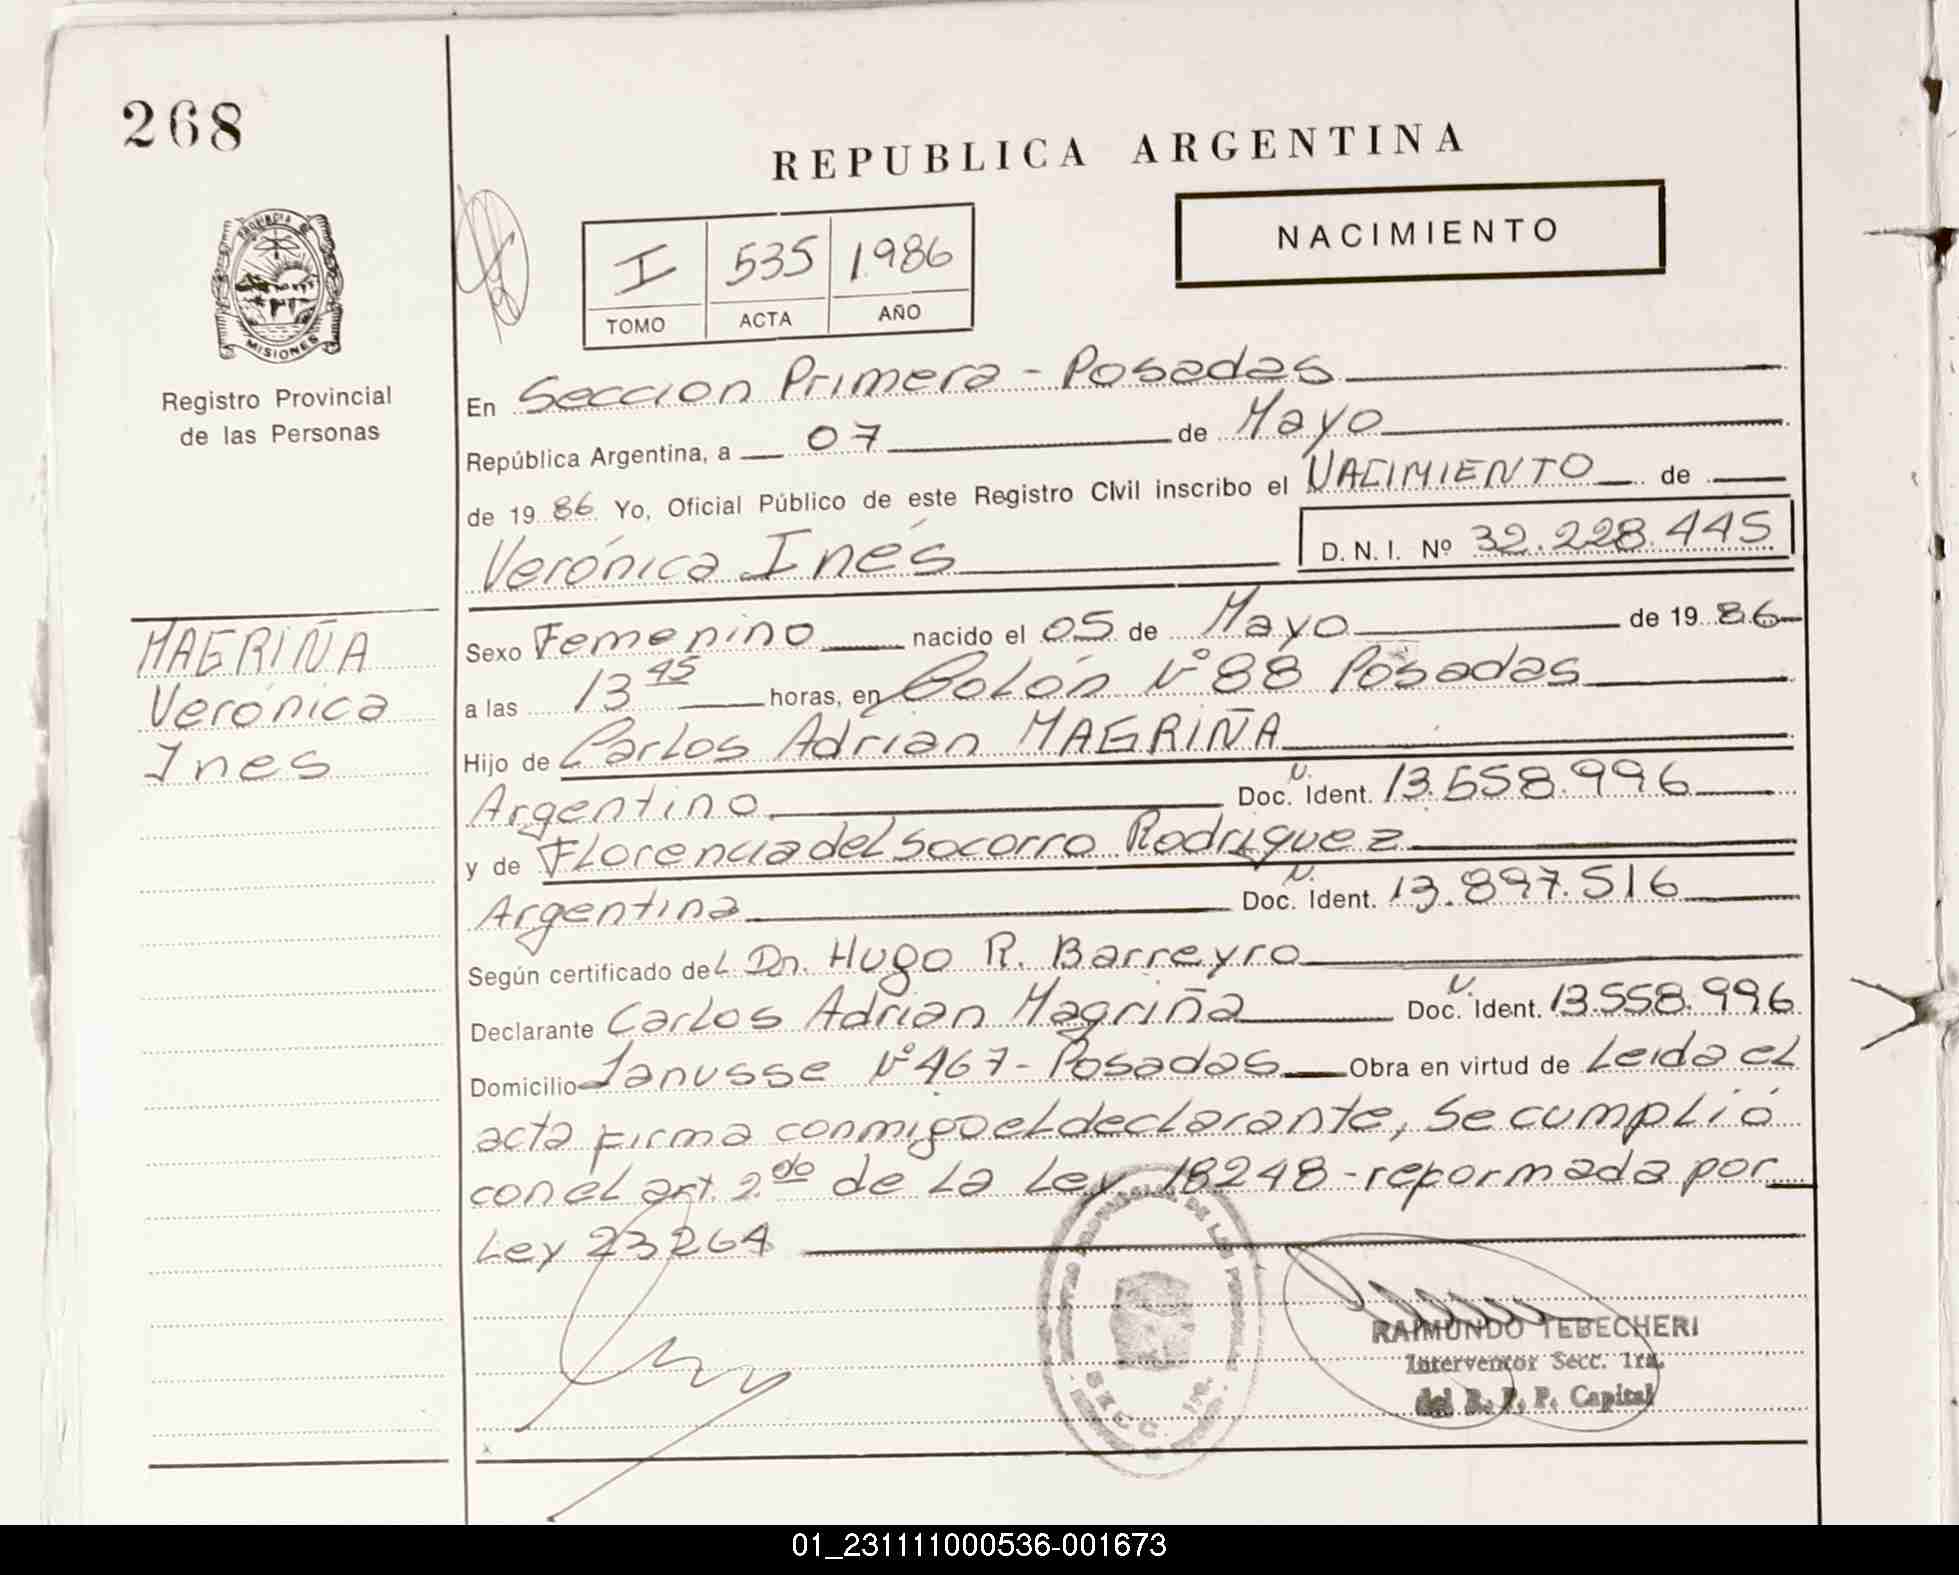 268
REPUBLICA ARGENTINA
NACIMIENTO
I 535 1986
TOMO ACTA AÑO
PROVINCIA DE
MISIONES
Registro Provincial
de las Personas
En Seccion Primera - Posadas
República Argentina, a 07 de Mayo
de 1986 Yo, Oficial Público de este Registro Civil inscribo el NACIMIENTO de
Verónica Inés
D. N. I. Nº 32.228.445
MAGRIÑA
Verónica
Ines
Sexo Femenino nacido el 05 de Mayo de 1986
a las 13 45 horas, en Colón Nº 88 Posadas
Hijo de Carlos Adrian MAGRIÑA
Argentino Doc. N. Ident. 13.558.996
y de Florencia del Socorro Rodriguez
Argentina Doc. N. Ident. 13.897.516
Según certificado del Dn. Hugo R. Barreyro
Declarante Carlos Adrian Magriña Doc. N. Ident. 13.558.996
Domicilio Lanusse Nº 467 - Posadas Obra en virtud de Leida el
acta firma conmigo el declarante, Se cumplió
con el art. 2do de la Ley 18248 - reformada por
Ley 23264
PROVINCIAL DE LAS
SECC. 1ra.
RAIMUNDO TEBECHERI
Interventor Secc. 1ra.
del R. P. P. Capital
01_231111000536-001673